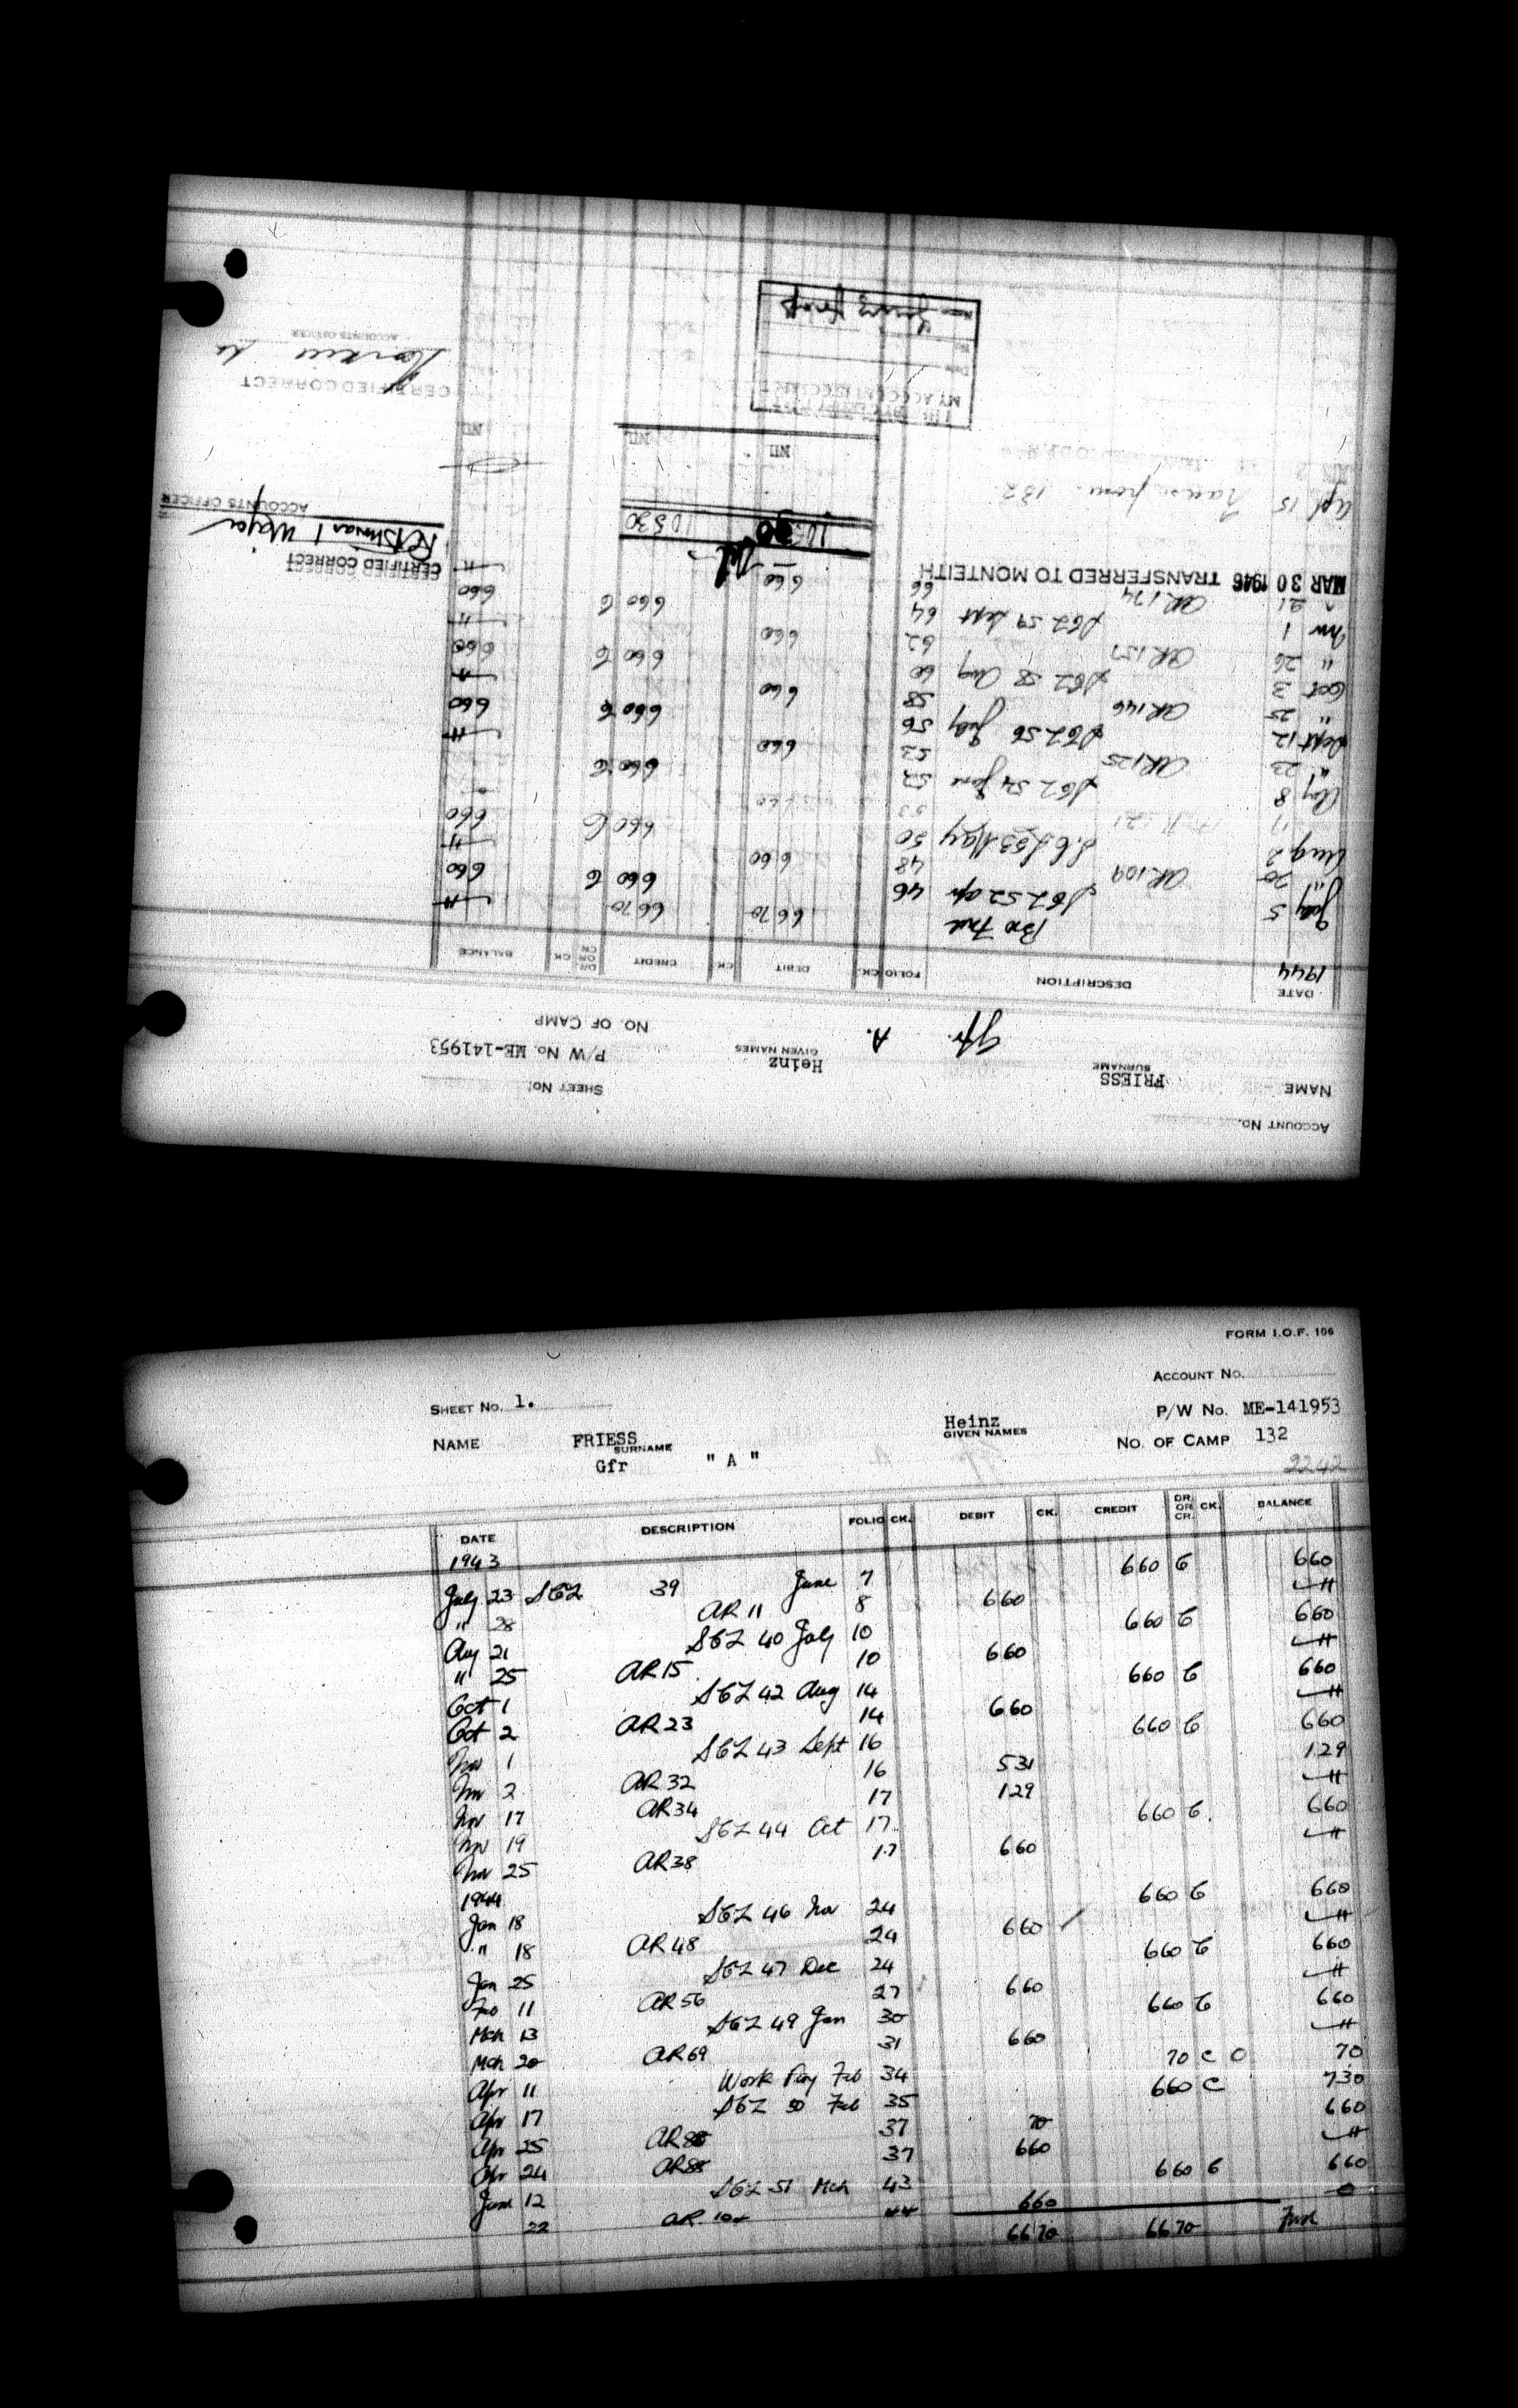 ACCOUNT No.
NAME FRIESS Heinz SHEET No.
SURNAME GIVEN NAMES P/W No. ME-141953
Gfr. A. NO. OF CAMP
DATE DESCRIPTION FOLIO CK. DEBIT CK. CREDIT DR. OR CR. CK. BALANCE
1944 Bro Fwd 6670 6670
July 5 SEL 52 Apr 46 660 C 660
" 20 AR 109 48 660
Aug 2 53 May 50 660 C 660
" 11 AR 121 53 660
Aug 8 SEL 54 June 52 660 C 660
" 23 AR 125 53 660
Sept 12 SEL 56 July 56 660 C 660
" 25 AR 146 58 660
Oct 3 SEL 58 Aug 60 660 C 660
" 26 AR 157 62 660
Nov 1 SEL 59 Sept 64 660 C 660
" 21 AR 174 66 660
MAR 30 1946 TRANSFERRED TO MONTEITH
CERTIFIED CORRECT
10530 10530
ACCOUNTS OFFICER
Apl 15 from 132
NIL NIL NIL
MY ACCOUNT IS CORRECT
CERTIFIED CORRECT
Date
No.
ACCOUNTS OFFICER
FORM I.O.F. 106
ACCOUNT No.
SHEET No. 1. P/W No. ME-141953
NAME FRIESS Heinz
SURNAME GIVEN NAMES NO. OF CAMP 132
Gfr " A "
2242
DATE DESCRIPTION FOLIO CK. DEBIT CK. CREDIT DR. OR CR. CK. BALANCE
1943
July 23 SEL 39 June 7 660 C 660
" 28 AR 11 8 660
Aug 21 SEL 40 July 10 660 C 660
" 25 AR 15 10 660
Oct 1 SEL 42 Aug 14 660 C 660
Oct 2 AR 23 14 660
Nov 1 SEL 43 Sept 16 660 C 660
Nov 2 AR 32 16 531 129
Nov 17 AR 34 17 129
Nov 19 SEL 44 Oct 17 660 C. 660
Nov 25 AR 38 17 660
1944
Jan 18 SEL 46 Nov 24 660 C 660
" 18 AR 48 24 660
Jan 25 SEL 47 Dec 24 660 C 660
Feb 11 AR 56 27 660
Mch 13 SEL 49 Jan 30 660 C 660
Mch 20 AR 69 31 660
Apr 11 Work Pay Feb 34 70 C 70
Apr 17 SEL 50 Feb 35 660 C 730
Apr 25 AR 88 37 70 660
Apr 24 AR 88 37 660
June 12 SEL 51 Mch 43 660 C 660
22 AR 104 44 660 0
6670 6670 Fwd